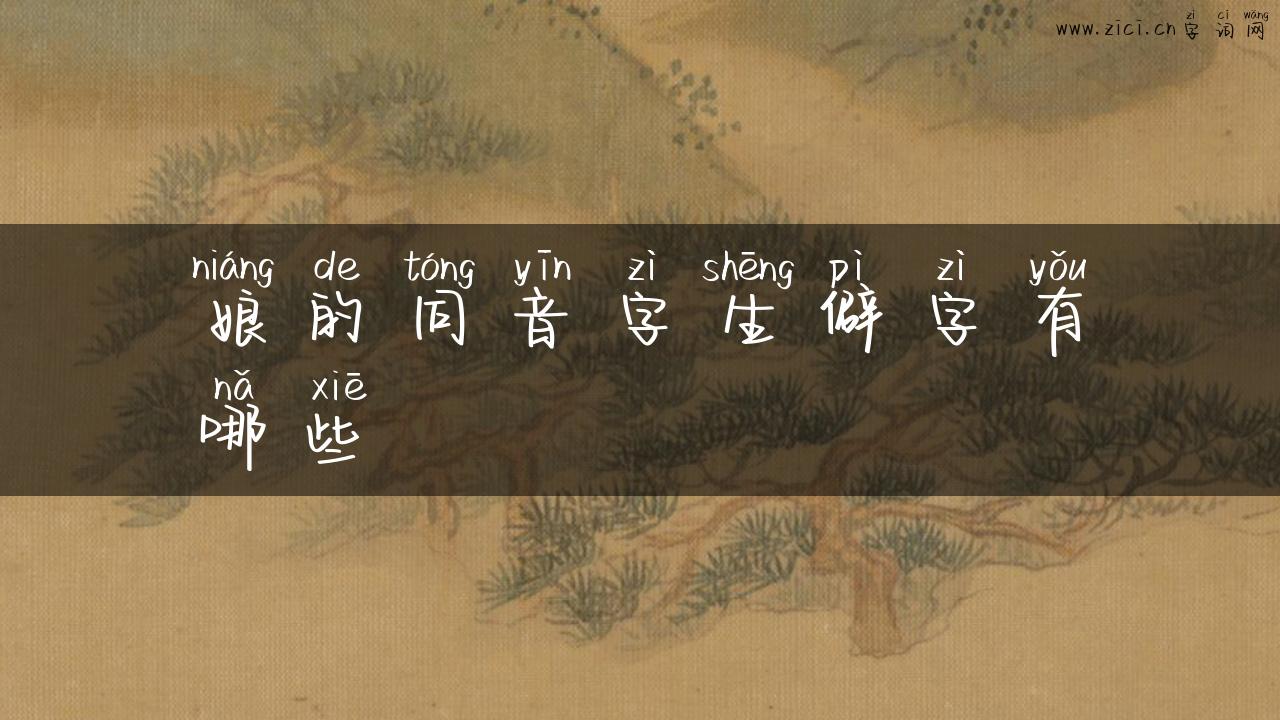 zì cí wǎng
www.zici.cn 字词网
niáng de tóng yīn zì shēng pì zì yǒu
娘的同音字生僻字有
nǎ xiē
哪些